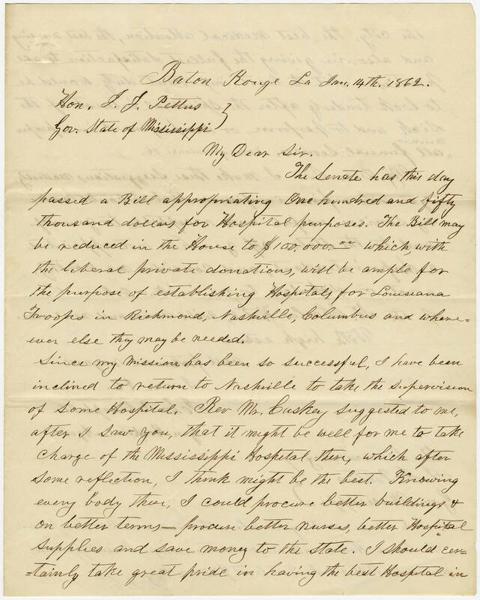 Baton Rouge La Jan. 14th. 1862.
Hon. J. J. Pettus
Gov. State of Mississippi }
My Dear Sir.
The Senate has this day
passed a Bill appropriating One hundred and fifty
thousand dollars for Hospital purposes. The Bill may
be reduced in the House to $100,000 which, with
the liberal private donations, will be ample for
the purpose of establishing Hospitals for Louisiana
Troops in Richmond, Nashville, Columbus and where-
ever else they may be needed.
Since my mission has been so successful, I have been
inclined to return to Nashville to take the supervision
of some Hospital. Rev Mr. Caskey suggested to me,
after I saw you, that it might be well for me to take
charge of the Mississippi Hospital there, which after
some reflection, I think might be the best. Knowing
every body there, I could procure better buildings &
on better terms — procure better nurses, better Hospital
supplies and save money to the state. I should cer-
=tainly take great pride in having the best Hospital in